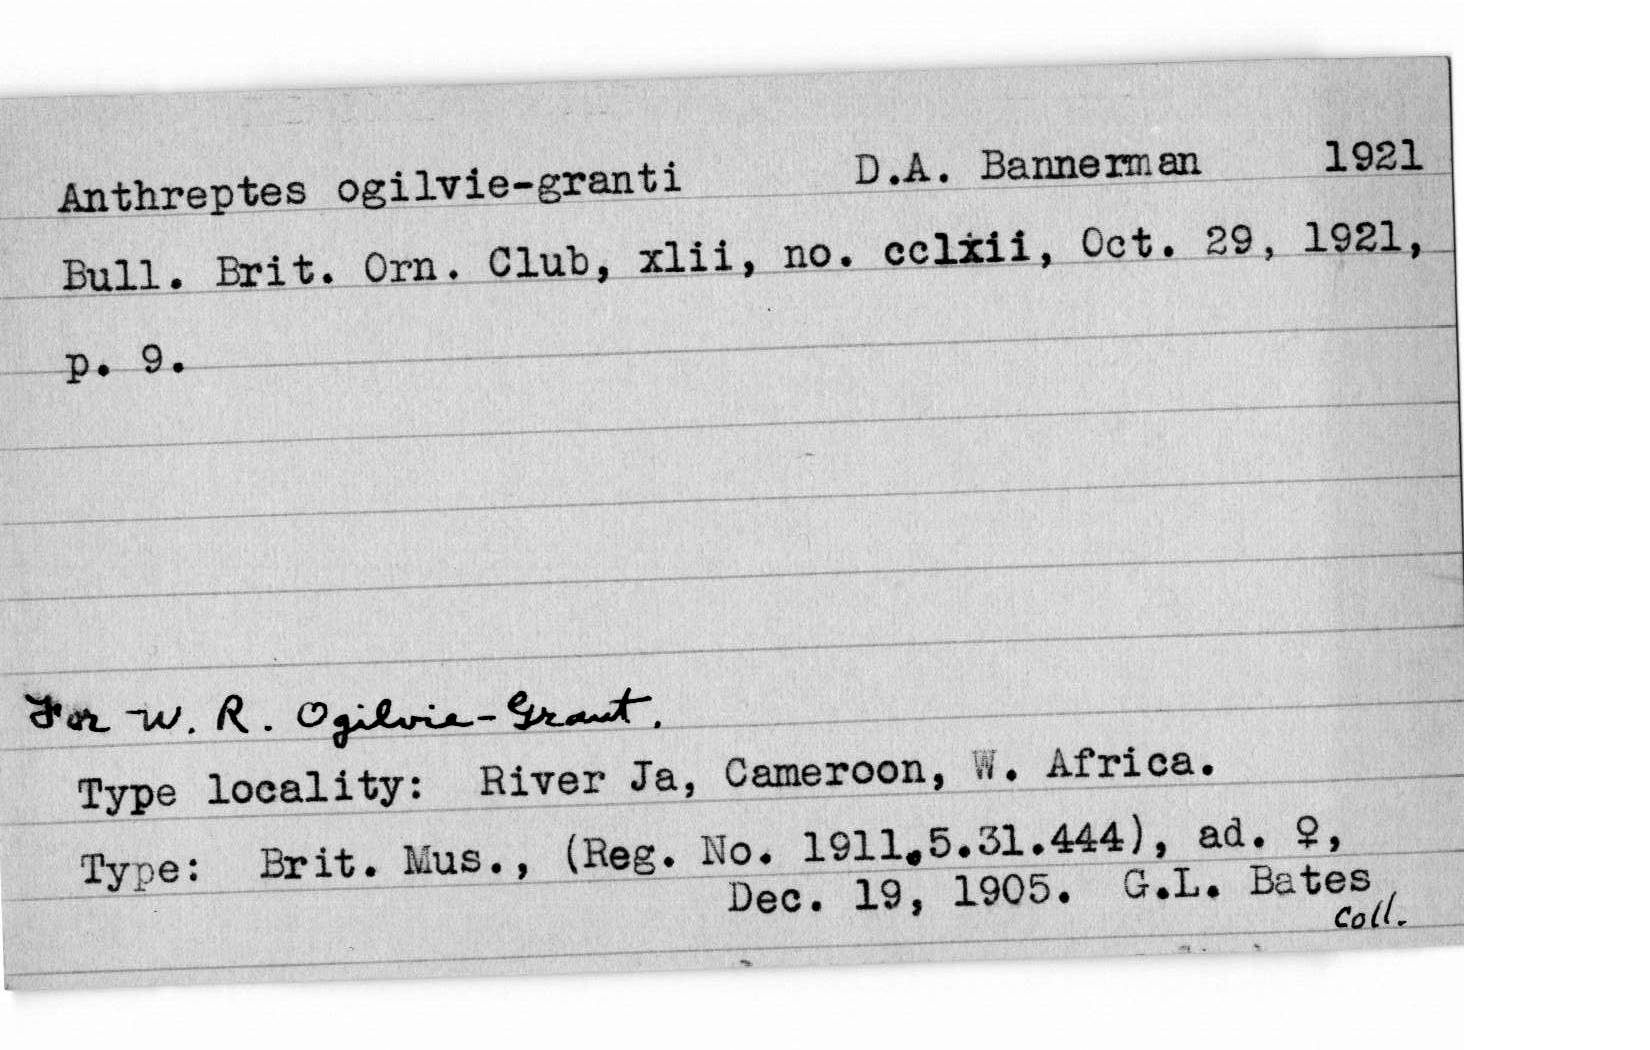 Anthreptes ogilvie-granti D.A. Bannerman 1921
Bull. Brit. Orn. Club, xlii, no. cclxii, Oct. 29, 1921,
p. 9.
For W. R. Ogilvie-Grant.
Type locality: River Ja, Cameroon, W. Africa.
Type: Brit. Mus., (Reg. No. 1911.5.31.444), ad. ♀,
Dec. 19, 1905. G.L. Bates
Coll.